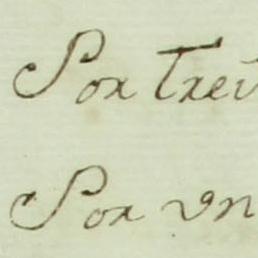 Por trei
Por vn